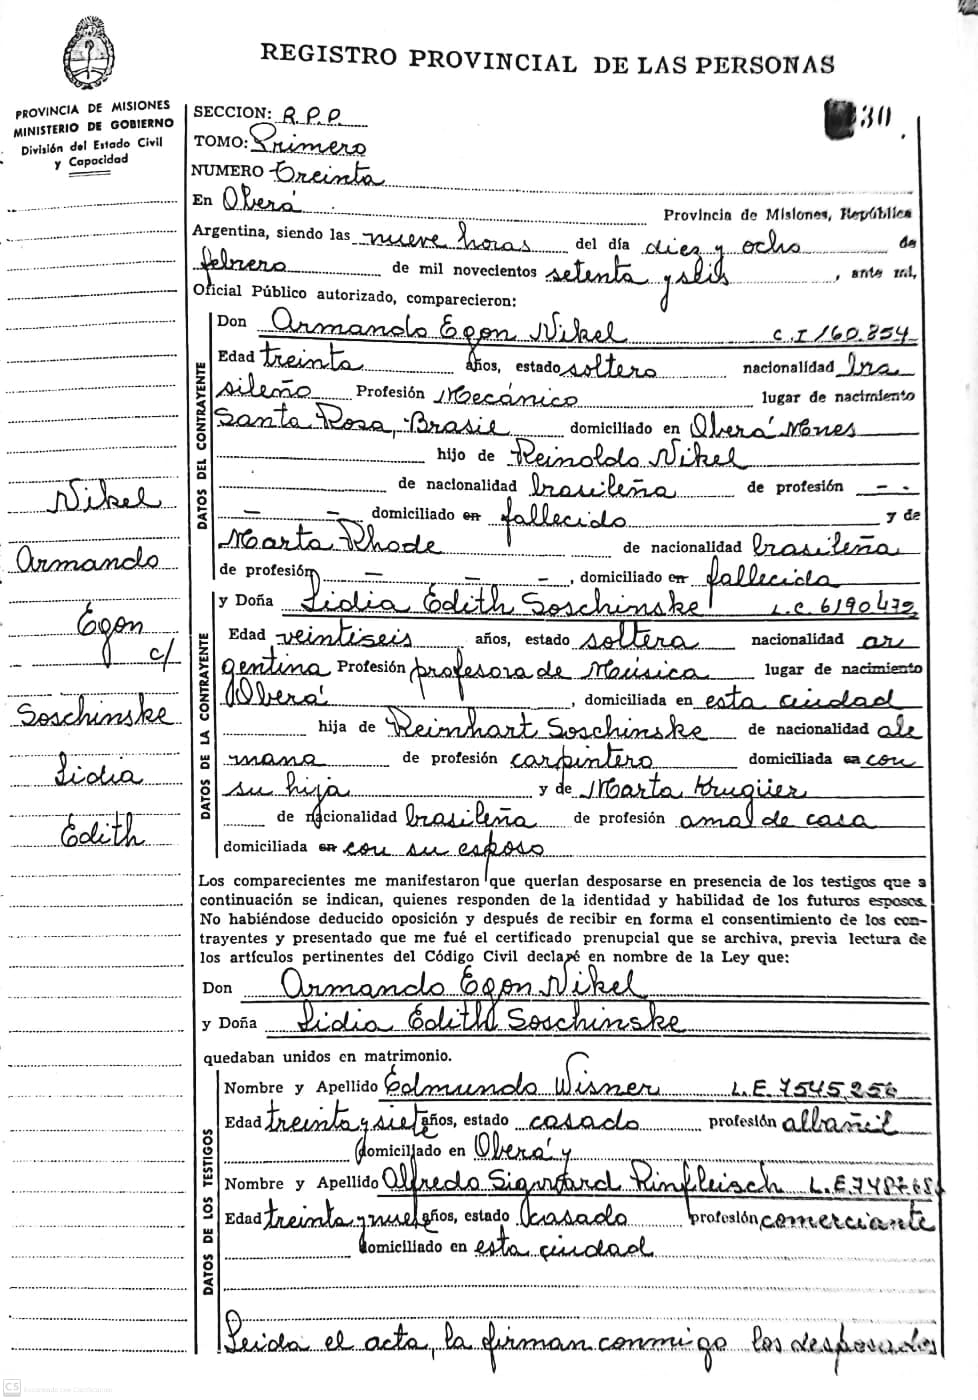 REGISTRO PROVINCIAL DE LAS PERSONAS
PROVINCIA DE MISIONES
MINISTERIO DE GOBIERNO
División del Estado Civil
y Capacidad
30
SECCION: R.P.P.
TOMO: Primero
NUMERO Treinta
En Oberá Provincia de Misiones, República
Argentina, siendo las nueve horas del día diez y ocho de
febrero de mil novecientos setenta y seis, ante mí,
Oficial Público autorizado, comparecieron:
DATOS DEL CONTRAYENTE
Don Armando Egon Nikel C.I 160.854
Edad treinta años, estado soltero nacionalidad bra
sileño Profesión Mecánico lugar de nacimiento
Santa Rosa, Brasil domiciliado en Oberá Mnes
hijo de Reinoldo Nikel
de nacionalidad brasileña de profesión - -
- - domiciliado en fallecido y de
Marta Rhode de nacionalidad brasileña
de profesión - - -, domiciliado en fallecida
DATOS DE LA CONTRAYENTE
y Doña Lidia Edith Soschinske L.C. 6190472
Edad veintiseis años, estado soltera nacionalidad ar
gentina Profesión profesora de Música lugar de nacimiento
Oberá, domiciliada en esta ciudad
hija de Reinhart Soschinske de nacionalidad ale
mana de profesión carpintero domiciliada en con
su hija y de Marta Krugüer
de nacionalidad brasileña de profesión ama de casa
domiciliada en con su esposo
Nikel
Armando
Egon
c/
Soschinske
Lidia
Edith
Los comparecientes me manifestaron que querían desposarse en presencia de los testigos que a
continuación se indican, quienes responden de la identidad y habilidad de los futuros esposos.
No habiéndose deducido oposición y después de recibir en forma el consentimiento de los con-
trayentes y presentado que me fué el certificado prenupcial que se archiva, previa lectura de
los artículos pertinentes del Código Civil declaré en nombre de la Ley que:
Don Armando Egon Nikel
y Doña Lidia Edith Soschinske
quedaban unidos en matrimonio.
DATOS DE LOS TESTIGOS
Nombre y Apellido Edmundo Wisner L.E. 7545256
Edad treinta y siete años, estado casado profesión albañil
domiciliado en Oberá y
Nombre y Apellido Alfredo Rinfleisch
Edad treinta y nueve años, estado casado profesión comerciante
domiciliado en esta ciudad
Leida el acta, la firman conmigo los desposados
CS